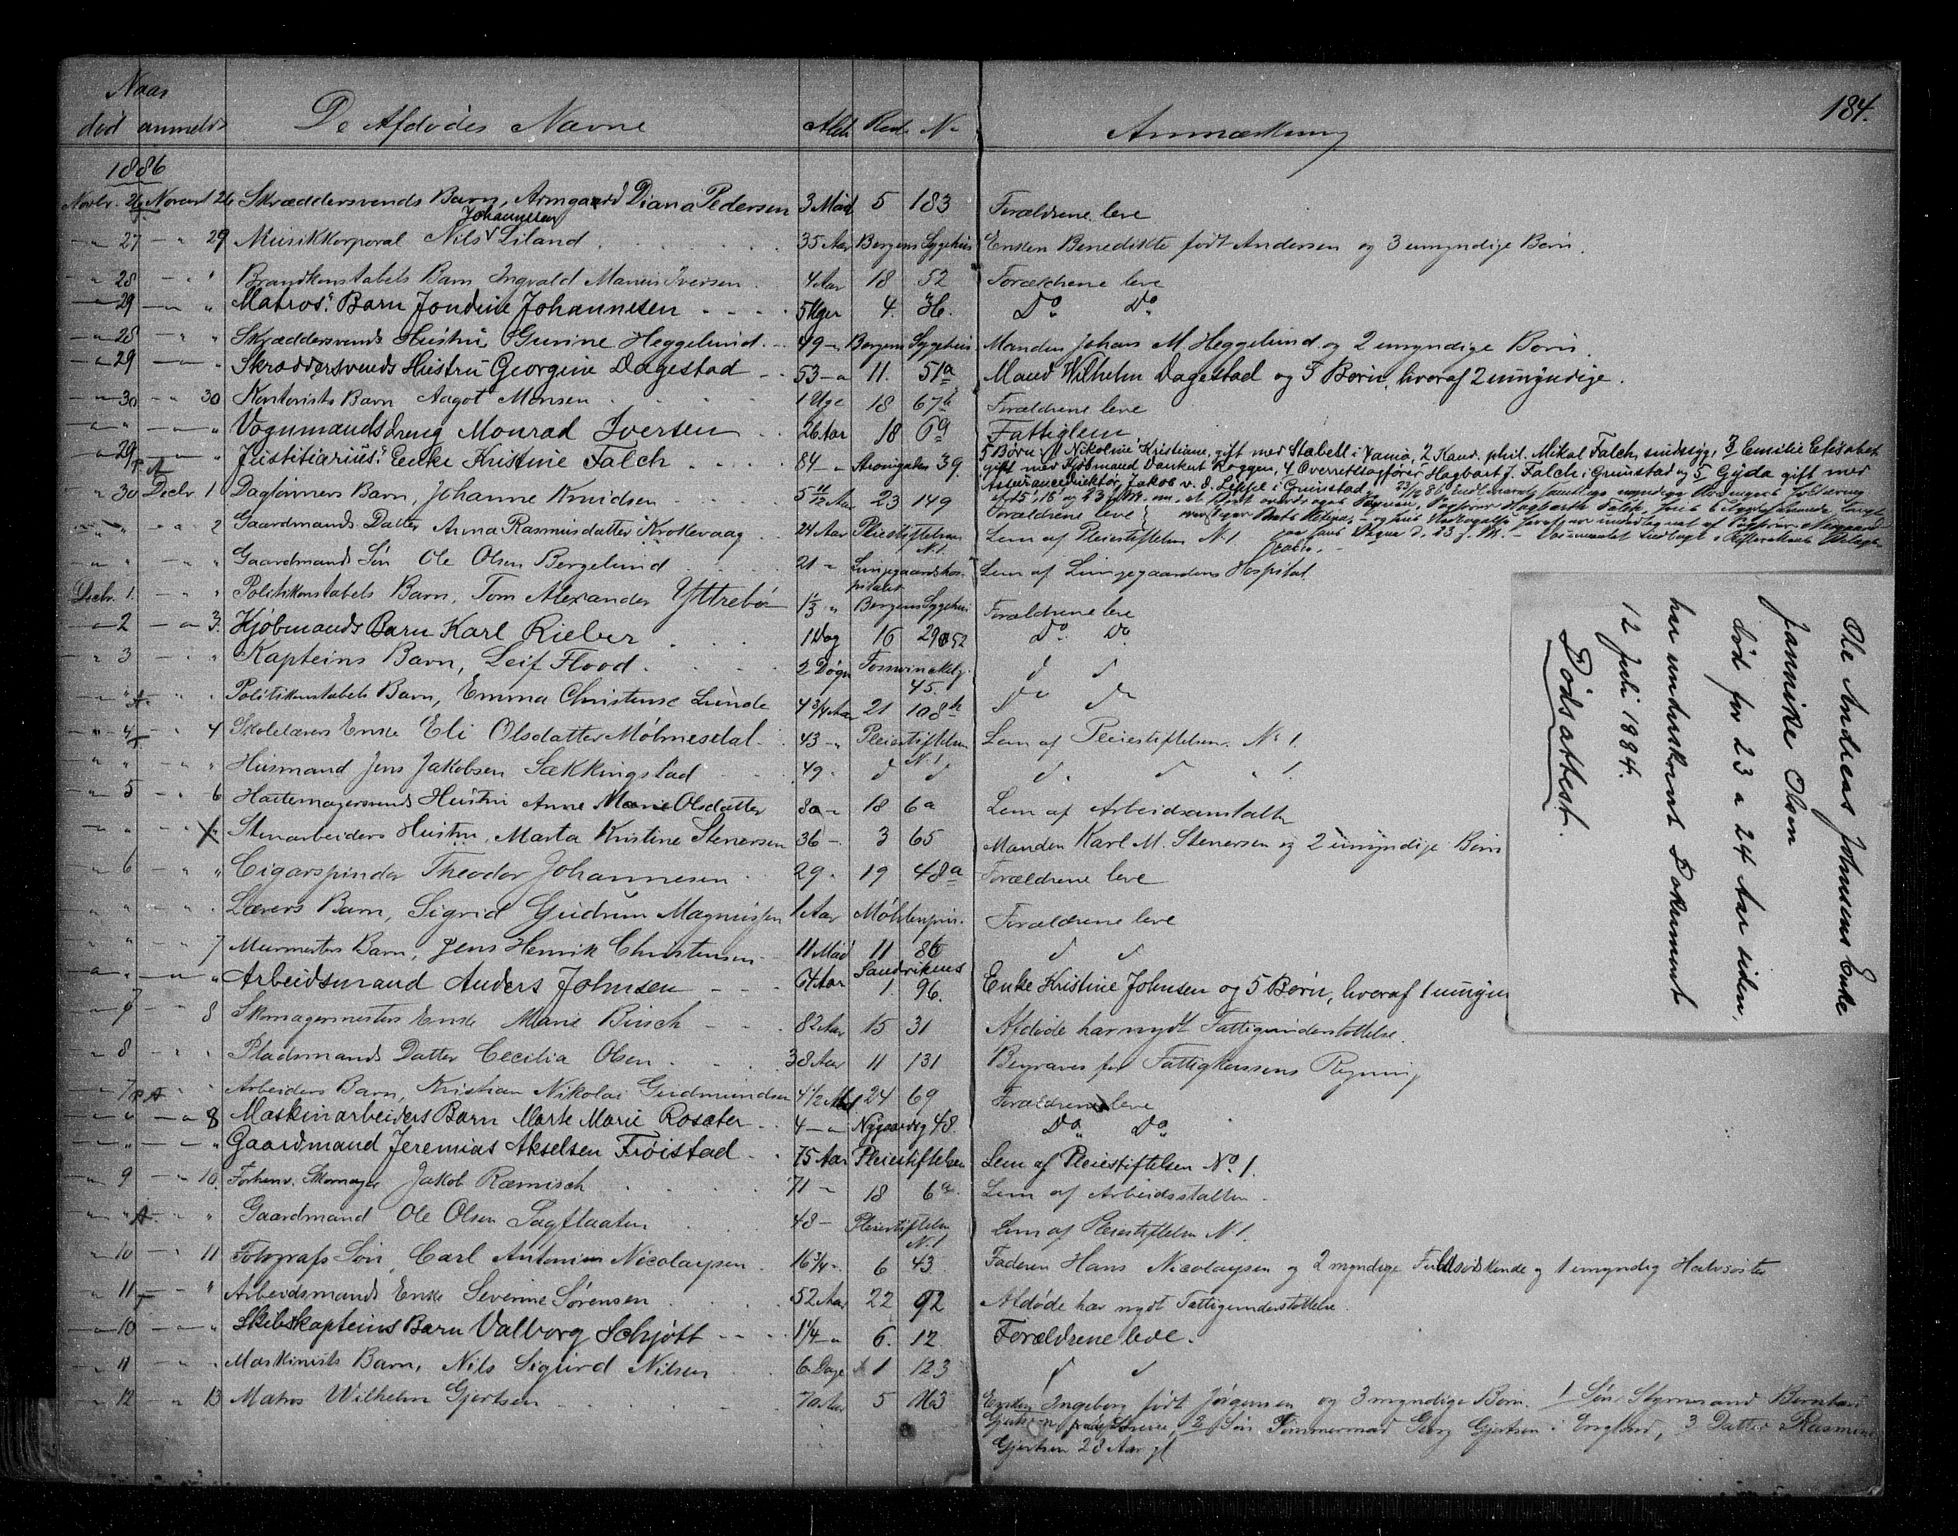 184.
Naar
død anmeldt De Afdødes Navne Alder Rode No Anmærkning
1886
Novbr. 26 Novem 26 Skræddersvends Barn, Armgaard Diana Pedersen 3 Mdr 5 183 Forældrene leve
Johannesen
27 29 Musikkorporal Nils Liland 35 Aar Bergens Sygehus Enken Benedikte født Andersen og 3 umyndige Børn.
28 " Brandkonstabels Barn Ingvald Marius Iversen 4 Aar 18 52 Forældrene leve
29 " Matros' Barn Jondine Johannesen 5 Uger 4. 36. Do Do
28 " Skræddersvends Hustru Gurine Heggelund 49 - Bergens Sygehus Manden Johans M. Heggelund og 2 umyndige Børn.
29 " Skræddersvends Hustru Georgine Dagestad 53 - 11. 51a Mand Wilhelm Dagestad og 3 Børn, hvoraf 2 umyndige.
30 30 Kontorists Barn Aagot Monsen 1 Uge 18 67b Forældrene leve
" " Vognmandsdreng Monrad Iversen 26 Aar 18 6a Fattiglem
29 " Justitiarius' Enke Kristine Falch 84 - 39. 5 Børn: 1 Nikoline Kristiane, gift med Stabell i 2 Kand. phil. Mikal Falch, sindssyg, 3 Emilie Elisabet
gift med Kjøbmand Dankert Roggen, 4 Overretssagfører Hagbart J. Falch i Grimstad og 5 Gyda gift med
Assurancedirektør Jakob v. d. Lippe i Grimstad.
30 Decbr. 1 Dagleiners Barn, Johanne Knudsen 5 11/12 Aar 23 149 Forældrene leve
" 2 Gaardmands Datter Anna Rasmusdatter Krokevaag 24 Aar Pleiestiftelsen N.1. Lem af Pleiestiftelsen N.1
" " Gaardmands Søn Ole Olsen Bergelund 21 " Lungegaardshospitalet Lem af Lungegaardens Hospital
Decbr. 1. " Politikonstabels Barn, Tom Alexander Yttrebø 1 1/3 " Bergens Sygehus Forældrene leve
2 3. Kjøbmands Barn Karl Rieber 1 Dag 16 Do Do
3 " Kapteins Barn, Leif Flood. 2 Døgn 45. d d
" " Politikonstabels Barn, Emma Christense Lunde 4 3/4 Aar 21 108b do do
4 4 Skolelærers Enke Eli Olsdatter Mølmesdal 43 - Pleiestiftelsen N.1. Lem af Pleiestiftelsen N. 1.
" " Husmand Jens Jakobsen Sækkingstad 49. d d d. d " 1.
5 6 Hattemagersvends Hustru Anne Marie Olsdatter 80 - 18 6a Lem af Arbeidsanstalten
" " Stenarbeiders Hustru, Marta Kristine Stenersen 36 - 3 65 Manden Karl M. Stenersen og 2 umyndige Børn
6 " Cigarspinder Theodor Johannesen 29. 19 48a Forældrene leve
" " Lærers Barn, Sigrid Gudrun Magnussen 1 Aar Møhlenpris. Forældrene leve
" 7 Murmesters Barn, Jens Henrik Christensen 11 Mdr 11 86 d d
" " Arbeidsmand Anders Johnsen 64 Aar Sandvikens 1. 96. Enke Kristine Johnsen og 5 Børn, hvoraf 1 umyn
7 8 Skomagermesters Enke Marie Busch 82 Aar 15 31 Afdøde har nydt Fattigunderstøttelse.
8 " Pladsmands Datter Cecilia Olsen 38 Aar 11 131 Begraves for Fattigkassens Regning
7 " Arbeiders Barn, Kristian Nikolai Gudmundsen 4 1/2 Md 24 69 Forældrene leve
" 8 Maskinarbeiders Barn Marte Marie Rosæter 4 - Nygaardsg 48. Do Do
" " Gaardmand Jeremias Akselsen Frøistad 75 Aar Pleiestiftelsen Lem af Pleiestiftelsen No. 1.
9 10. Forhenv. Skomager Jakob Ræmisch 71 - 18 6a. Lem af Arbeidsstalten.
" " Gaardmand Ole Olsen Sagflaaten 48 - Pleiestiftelsen N.1 Lem af Pleiestiftelsen N. 1.
10 11 Fotografs Søn, Carl Antonius Nicolaysen 16 3/4 - 6 43 Faderen Hans Nicolaysen og 2 myndige Fuldsødskende og 1 umyndig Halvsøster
11 " Arbeidsmands Enke Severine Sørensen 52 Aar 22 92 Afdøde har nydt Fattigunderstøttelse.
10 " Skibskapteins Barn Valborg Schjøtt 1 1/4 - 6. 12. Forældrene leve.
11 " Maskinists Barn, Nils Sigurd Nilsen 6 Dage 1 123 d d
12 13 Matros Wilhelm Gjertsen 70 Aar 5 163 Enken Ingeborg født Jørgensen og 3 myndige Børn. 1 Søn Styrmand Berntsen
Gjertsen 2 Søn Tømmermand Georg Gjertsen i England, 3 Datter Rasmine
Gjertsen 28 Aar gl
Ole Andreas Johnsens Enke
Jannike Olsen
død for 23 a 24 Aar siden,
har underskrevet Dokument
12 Juli 1884.
Dødsattest.